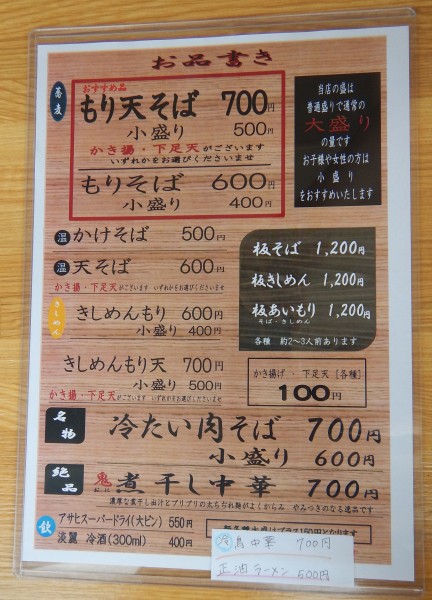 お品書き
蕎麦
おすすめ品
もり天そば 700円
小盛り 500円
かき揚・下足天がございます
いずれかをお選びくださいませ
もりそば 600円
小盛り 400円
当店の盛は
普通盛りで通常の
大盛り
の量です
お子様や女性の方は
小盛り
をおすすめいたします
温 かけそば 500円
温 天そば 600円
かき揚・下足天がございます いずれかをお選びくださいませ
きしめん
きしめんもり 600円
小盛り 400円
きしめんもり天 700円
小盛り 500円
かき揚・下足天がございます いずれかをお選びくださいませ
板そば 1,200円
板きしめん 1,200円
板あいもり 1,200円
そば・きしめん
各種 約2〜3人前あります
かき揚げ・下足天[各種]
100円
名物
冷たい肉そば 700円
小盛り 600円
絶品
鬼煮干し中華 700円
濃厚な煮干し出汁とプリプリの太ちぢれ麺がよくからみ やみつきのなる逸品です
飲
アサヒスーパードライ(大ビン) 550円
淡麗 冷酒(300ml) 400円
プラス150円となります
冷 鳥中華 700円
正油ラーメン 500円